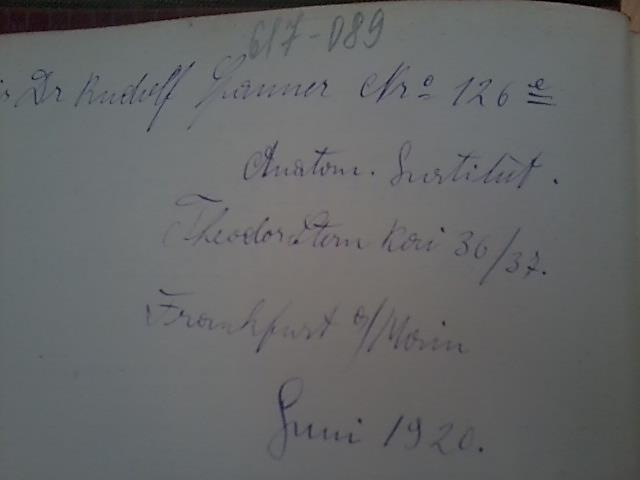 617-089
Dr Rudolf Spanner Nro 126e
Anatom. Institut.
Theodor Stern Kai 36/37.
Frankfurt a/Main
Juni 1920.